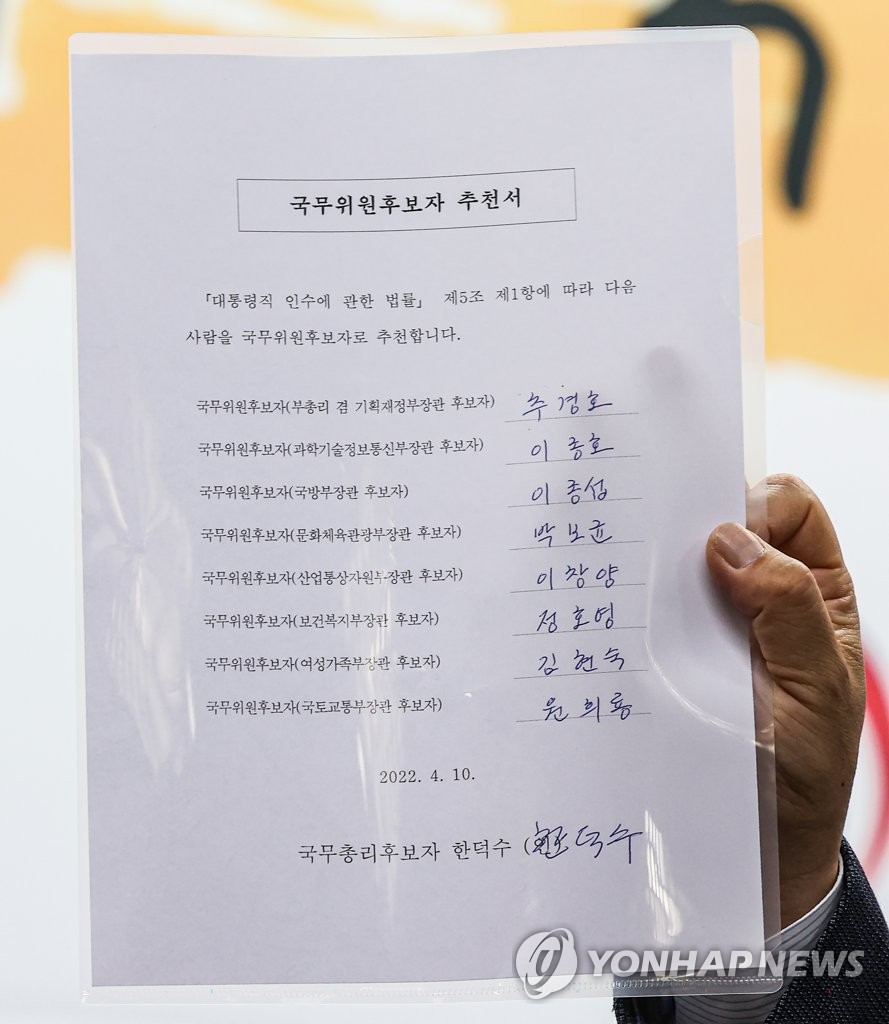 국무위원후보자 추천서
「대통령직 인수에 관한 법률」 제5조 제1항에 따라 다음
사람을 국무위원후보자로 추천합니다.
국무위원후보자(부총리 겸 기획재정부장관 후보자) 추경호
국무위원후보자(과학기술정보통신부장관 후보자) 이종호
국무위원후보자(국방부장관 후보자) 이종섭
국무위원후보자(문화체육관광부장관 후보자) 박보균
국무위원후보자(산업통상자원부장관 후보자) 이창양
국무위원후보자(보건복지부장관 후보자) 정호영
국무위원후보자(여성가족부장관 후보자) 김현숙
국무위원후보자(국토교통부장관 후보자) 원희룡
2022. 4. 10.
국무총리후보자 한덕수 ( 한덕수
YONHAP NEWS